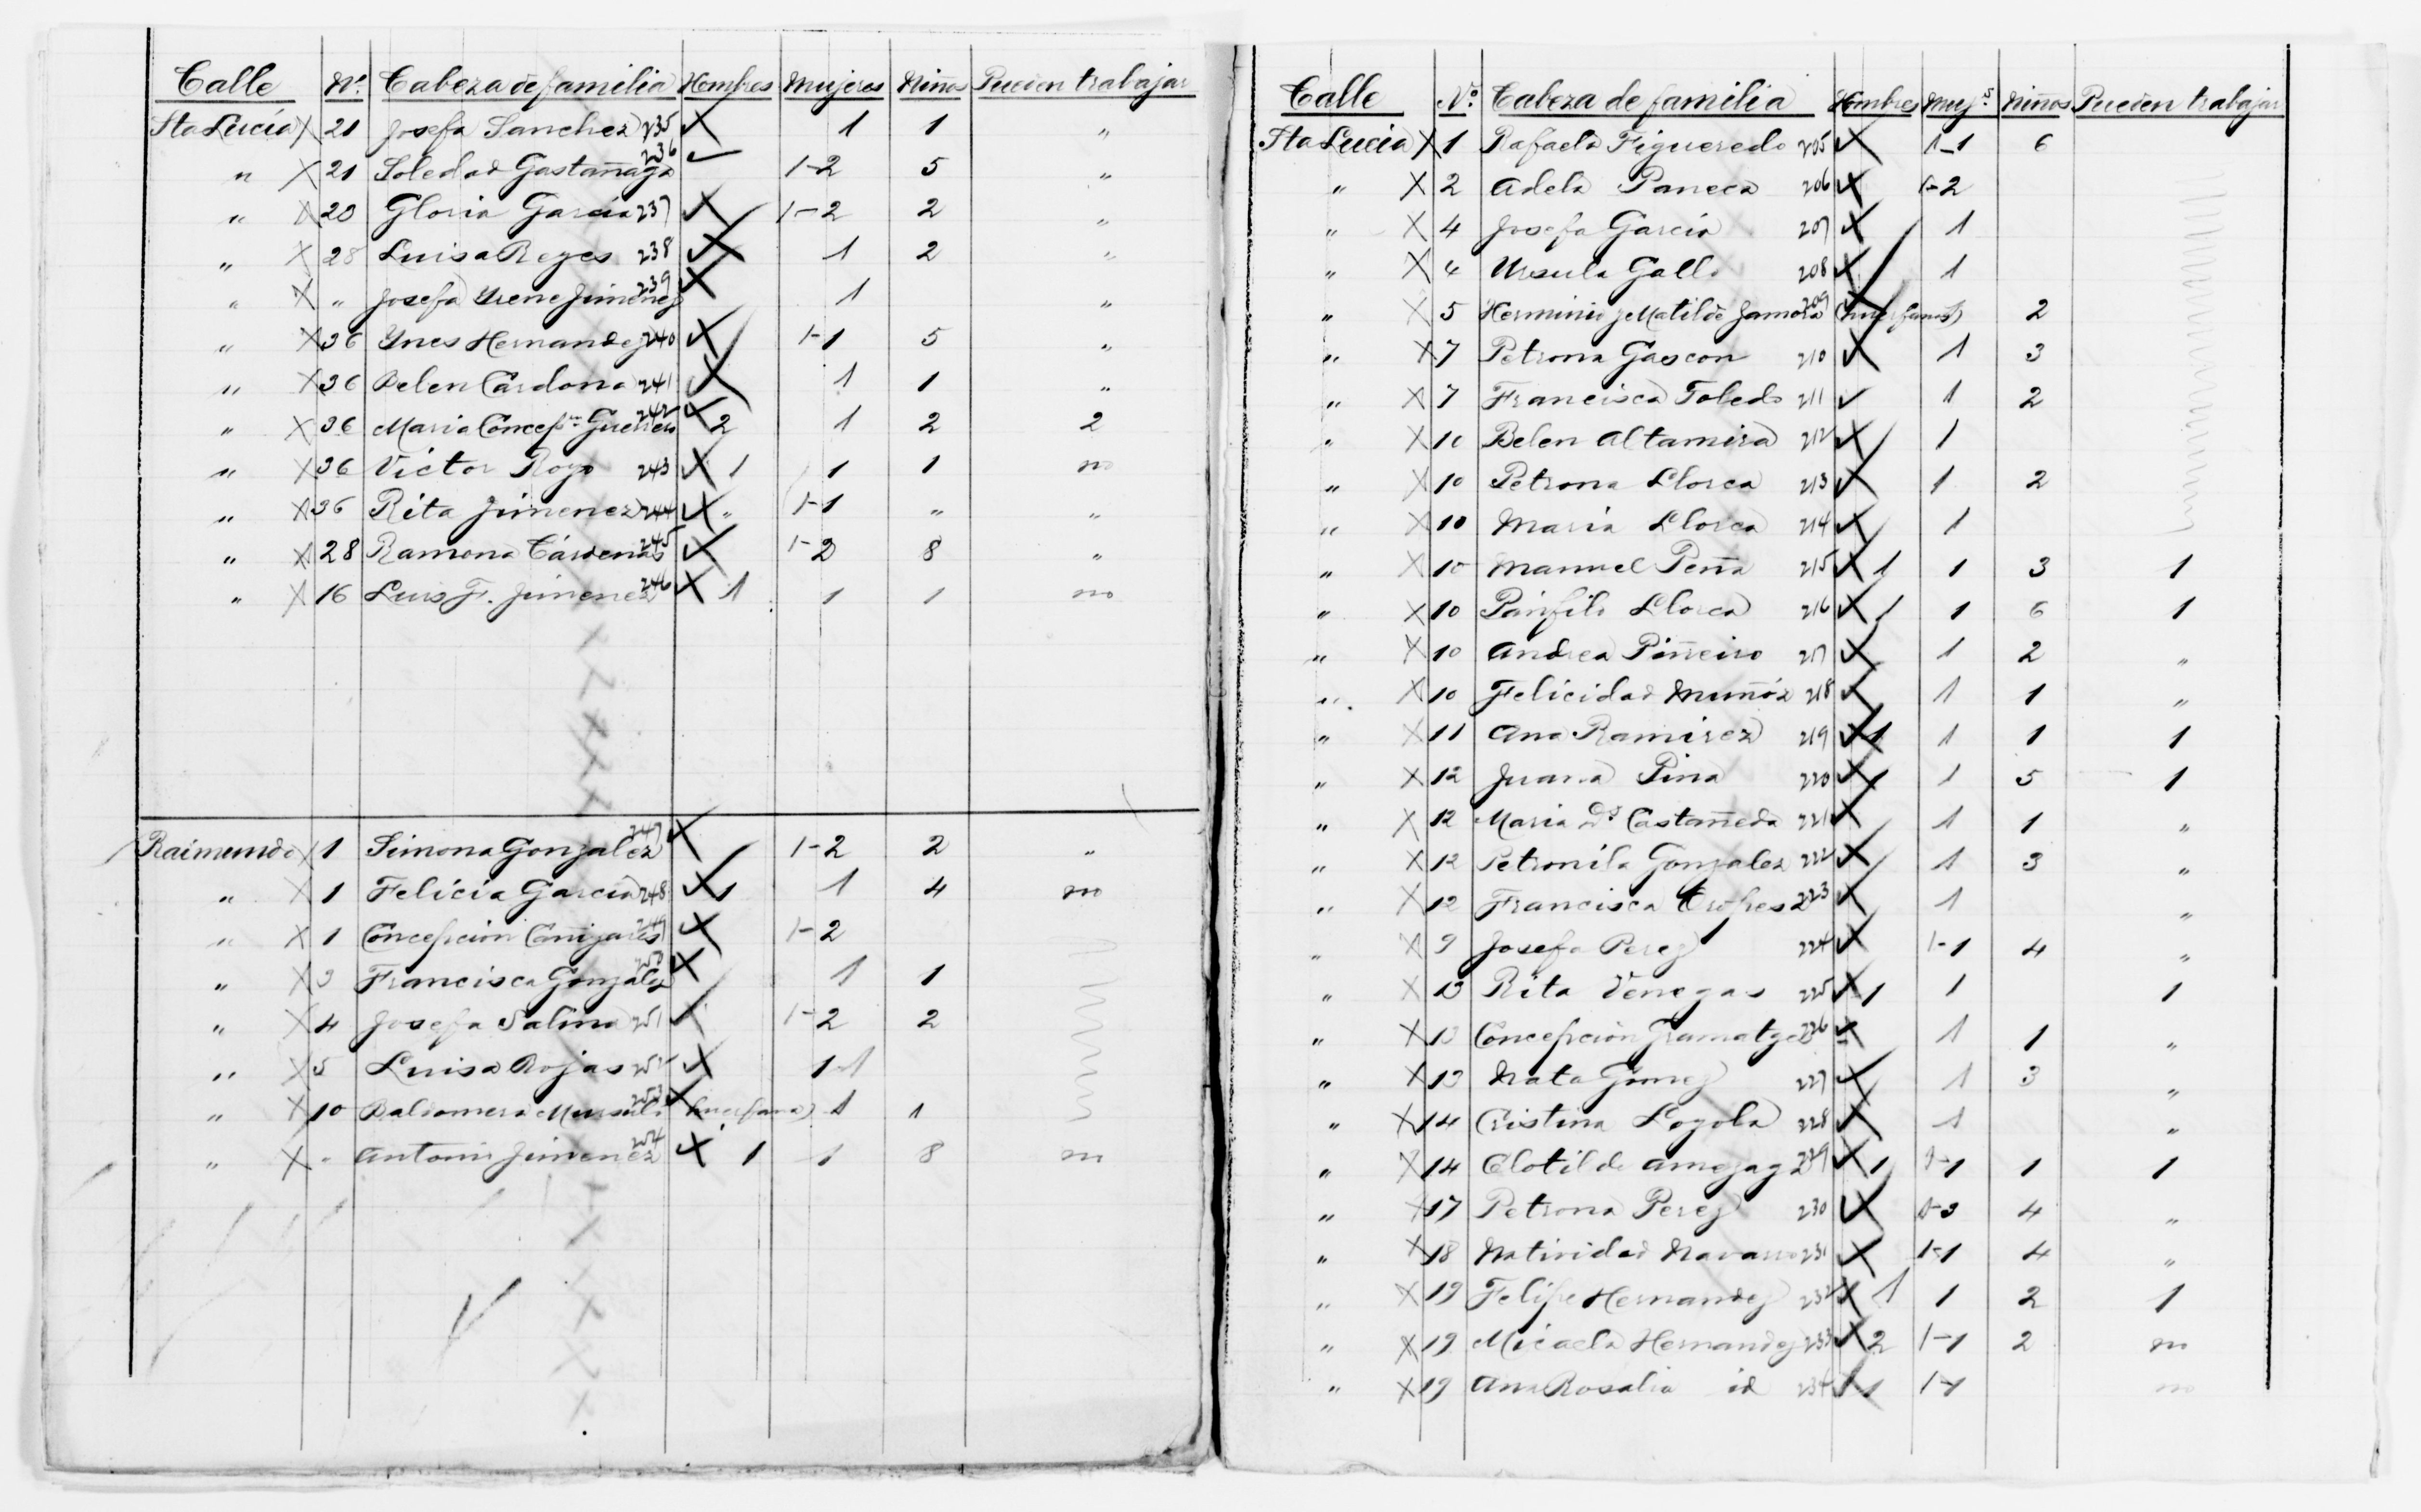 Calle Nº. Cabeza de familia Hombres Mujeres Niños Pueden trabajar
Sta Lucía X 21 Josefa Sanchez 235 X 1 1 "
" X 21 Soledad Gastañaga 236 ✓ 1-2 5 "
" X 20 Gloria García 237 X 1-2 2 "
" X 28 Luisa Reyes 238 X 1 2 "
" X " Josefa Yrene Jimenez 239 X 1 "
" X 36 Ynes Hernandez 240 X 1-1 5 "
" X 36 Belen Cardona 241 X 1 1 "
" X 36 Maria Concepn Guerrero 242 X 2 1 2 2
" X 36 Victor Royo 243 X 1 1 1 no
" X 36 Rita Jimenez 244 X " 1-1 " "
" X 28 Ramona Cárdenas 245 X 1-2 8 "
" X 16 Luis F. Jimenez 246 X 1 1 1 no
Raimundo X 1 Simona Gonzalez 247 X 1-2 2 "
" X 1 Felicia García 248 X 1 1 4 no
" X 1 Concepcion Cañizares 249 X 1-2
" X 3 Francisca Gonzalez 250 X 1 1
" X 4 Josefa Salina 251 X 1-2 2
" X 5 Luisa Rojas 252 X 1-1
" X 10 Baldomera 253 X (huerfana) 1 1
" X " Antonio Jimenez 254 X 1 1 8 no
Calle Nº. Cabeza de familia Hombres Mujs. Niños Pueden trabajar
Sta Lucia X 1 Rafaela Figueredo 205 X 1-1 6
" X 2 Adela Paneca 206 X 1-2
" X 4 Josefa García 207 X 1
" X 4 Ursula Gallo 208 X 1
" X 5 Herminio y Matilde Zamora 209 X (huerfanos) 2
" X 7 Petrona Gascon 210 X 1 3
" X 7 Francisca Toledo 211 ✓ 1 2
" X 10 Belen Altamira 212 X 1
" X 10 Petrona Llorca 213 X 1 2
" X 10 Maria Llorca 214 X 1
" X 10 Manuel Peña 215 X 1 1 3 1
" X 10 Pánfilo Llorca 216 X 1 1 6 1
" X 10 Andrea Piñeiro 217 X 1 2 "
" X 10 Felicidad Muñóz 218 X 1 1 "
" X 11 Ana Ramirez 219 X 1 1 1 1
" X 12 Juana Pina 220 X 1 1 5 1
" X 12 Maria Ds Castañeda 221 X 1 1 "
" X 12 Petronila Gonzalez 222 X 1 3 "
" X 12 Francisca Oropesa 223 X 1 "
" X 9 Josefa Perez 224 X 1-1 4 "
" X 13 Rita Venegas 225 X 1 1 1
" X 13 Concepcion Gramatges 226 X 1 1 "
" X 13 Nata Gomez 227 X 1 3 "
" X 14 Cristina Loyola 228 X 1 "
" X 14 Clotilde Amezaga 229 X 1 1-1 1 1
" X 17 Petrona Perez 230 X 1-3 4 "
" X 18 Natividad Navarro 231 X 1-1 4 "
" X 19 Felipe Hernandez 232 X 1 1 2 1
" X 19 Micaela Hernandez 233 X 2 1-1 2 no
" X 19 Ana Rosalia id 234 X 1 1-1 no